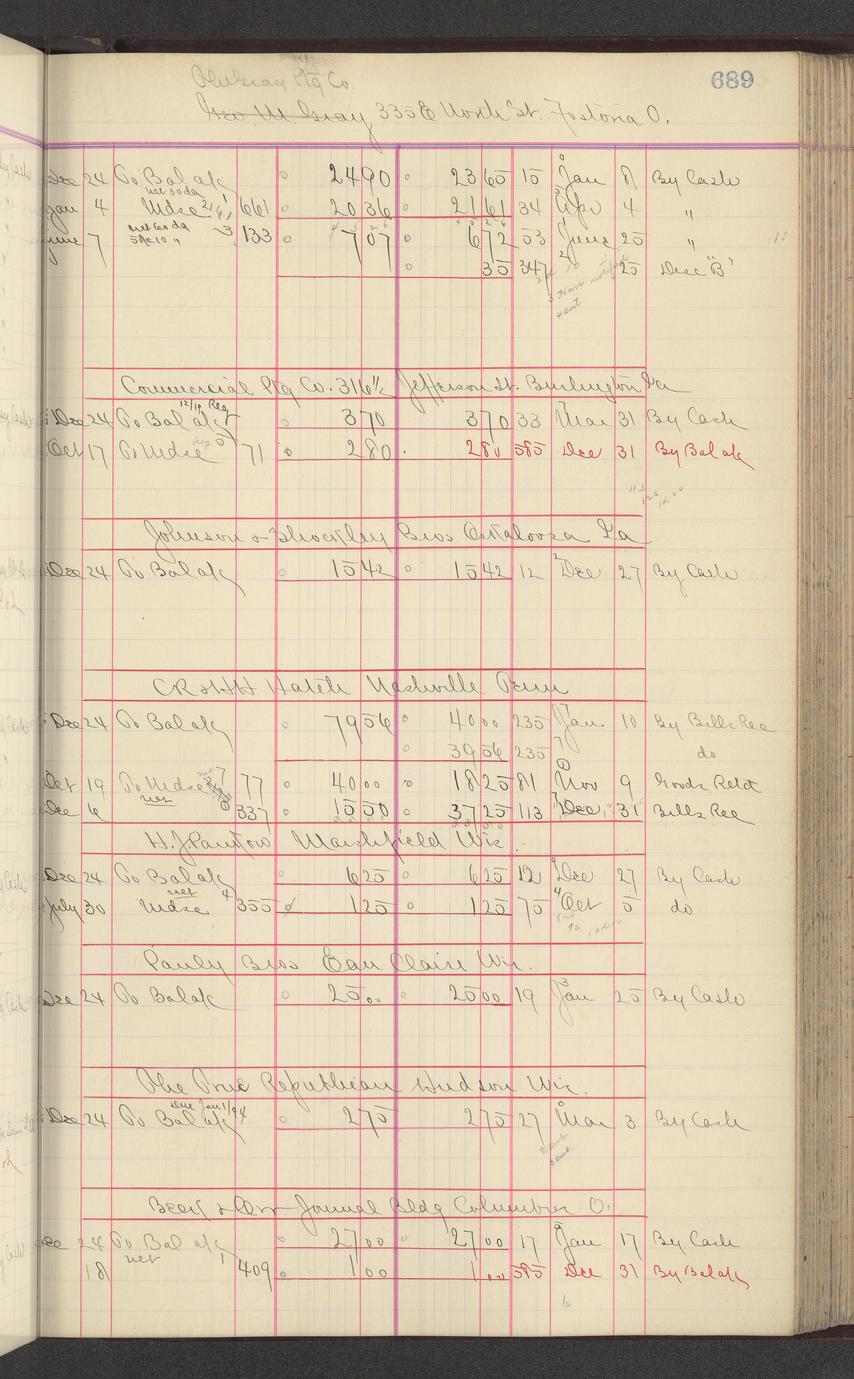 689
Ptg Co.
Geo. M. Gray 335 E North St. Fostoria O.
Dec 24 To Bal a/c 24 90 23 65 15 Jan 8 By Cash
net 30 da
Jan 4 Mdse 661 20 36 21 61 34 Apr 4 "
net 60 da
June 7 5% 10 " 3 133 7 07 6 72 53 June 25 "
35 347 25 Disc "B"
Commercial Ptg Co. 316½ Jefferson St. Burlington Ia
12/19 Reg
Dec 24 To Bal a/c 3 70 3 70 33 Mar 31 By Cash
Oct 17 To Mdse 71 2 80 2 80 585 Dec 31 By Bal a/c
Johnson & Shockley Bros Oskaloosa Ia
Dec 24 To Bal a/c 15 42 15 42 12 Dec 27 By Cash
CR & HH Hatch Nashville Tenn
Dec 24 To Bal a/c 79 56 40 00 235 Jan 10 By Bills Rec
39 56 235 do
Oct 19 To Mdse 77 40 00 18 25 81 Nov 9 Goods Retd
net
Dec 6 337 15 50 37 25 113 Dec 31 Bills Rec
Marshfield Wis.
Dec 24 To Bal a/c 6 25 6 25 12 Dec 27 By Cash
net
July 30 Mdse 4 355 1 25 1 25 75 Oct 5 do
Pauly Bros Eau Claire Wis.
Dec 24 To Bal a/c 25 00 25 00 19 Jan 25 By Cash
The True Republican Hudson Wis.
Due Jan 1/94
Dec 24 To Bal a/c 2 75 2 75 27 Mar 3 By Cash
Beck & Orr Journal Bldg Columbus O.
Dec 24 To Bal a/c 27 00 27 00 17 Jan 17 By Cash
net 1
18 409 1 00 1 00 585 Dec 31 By Bal a/c